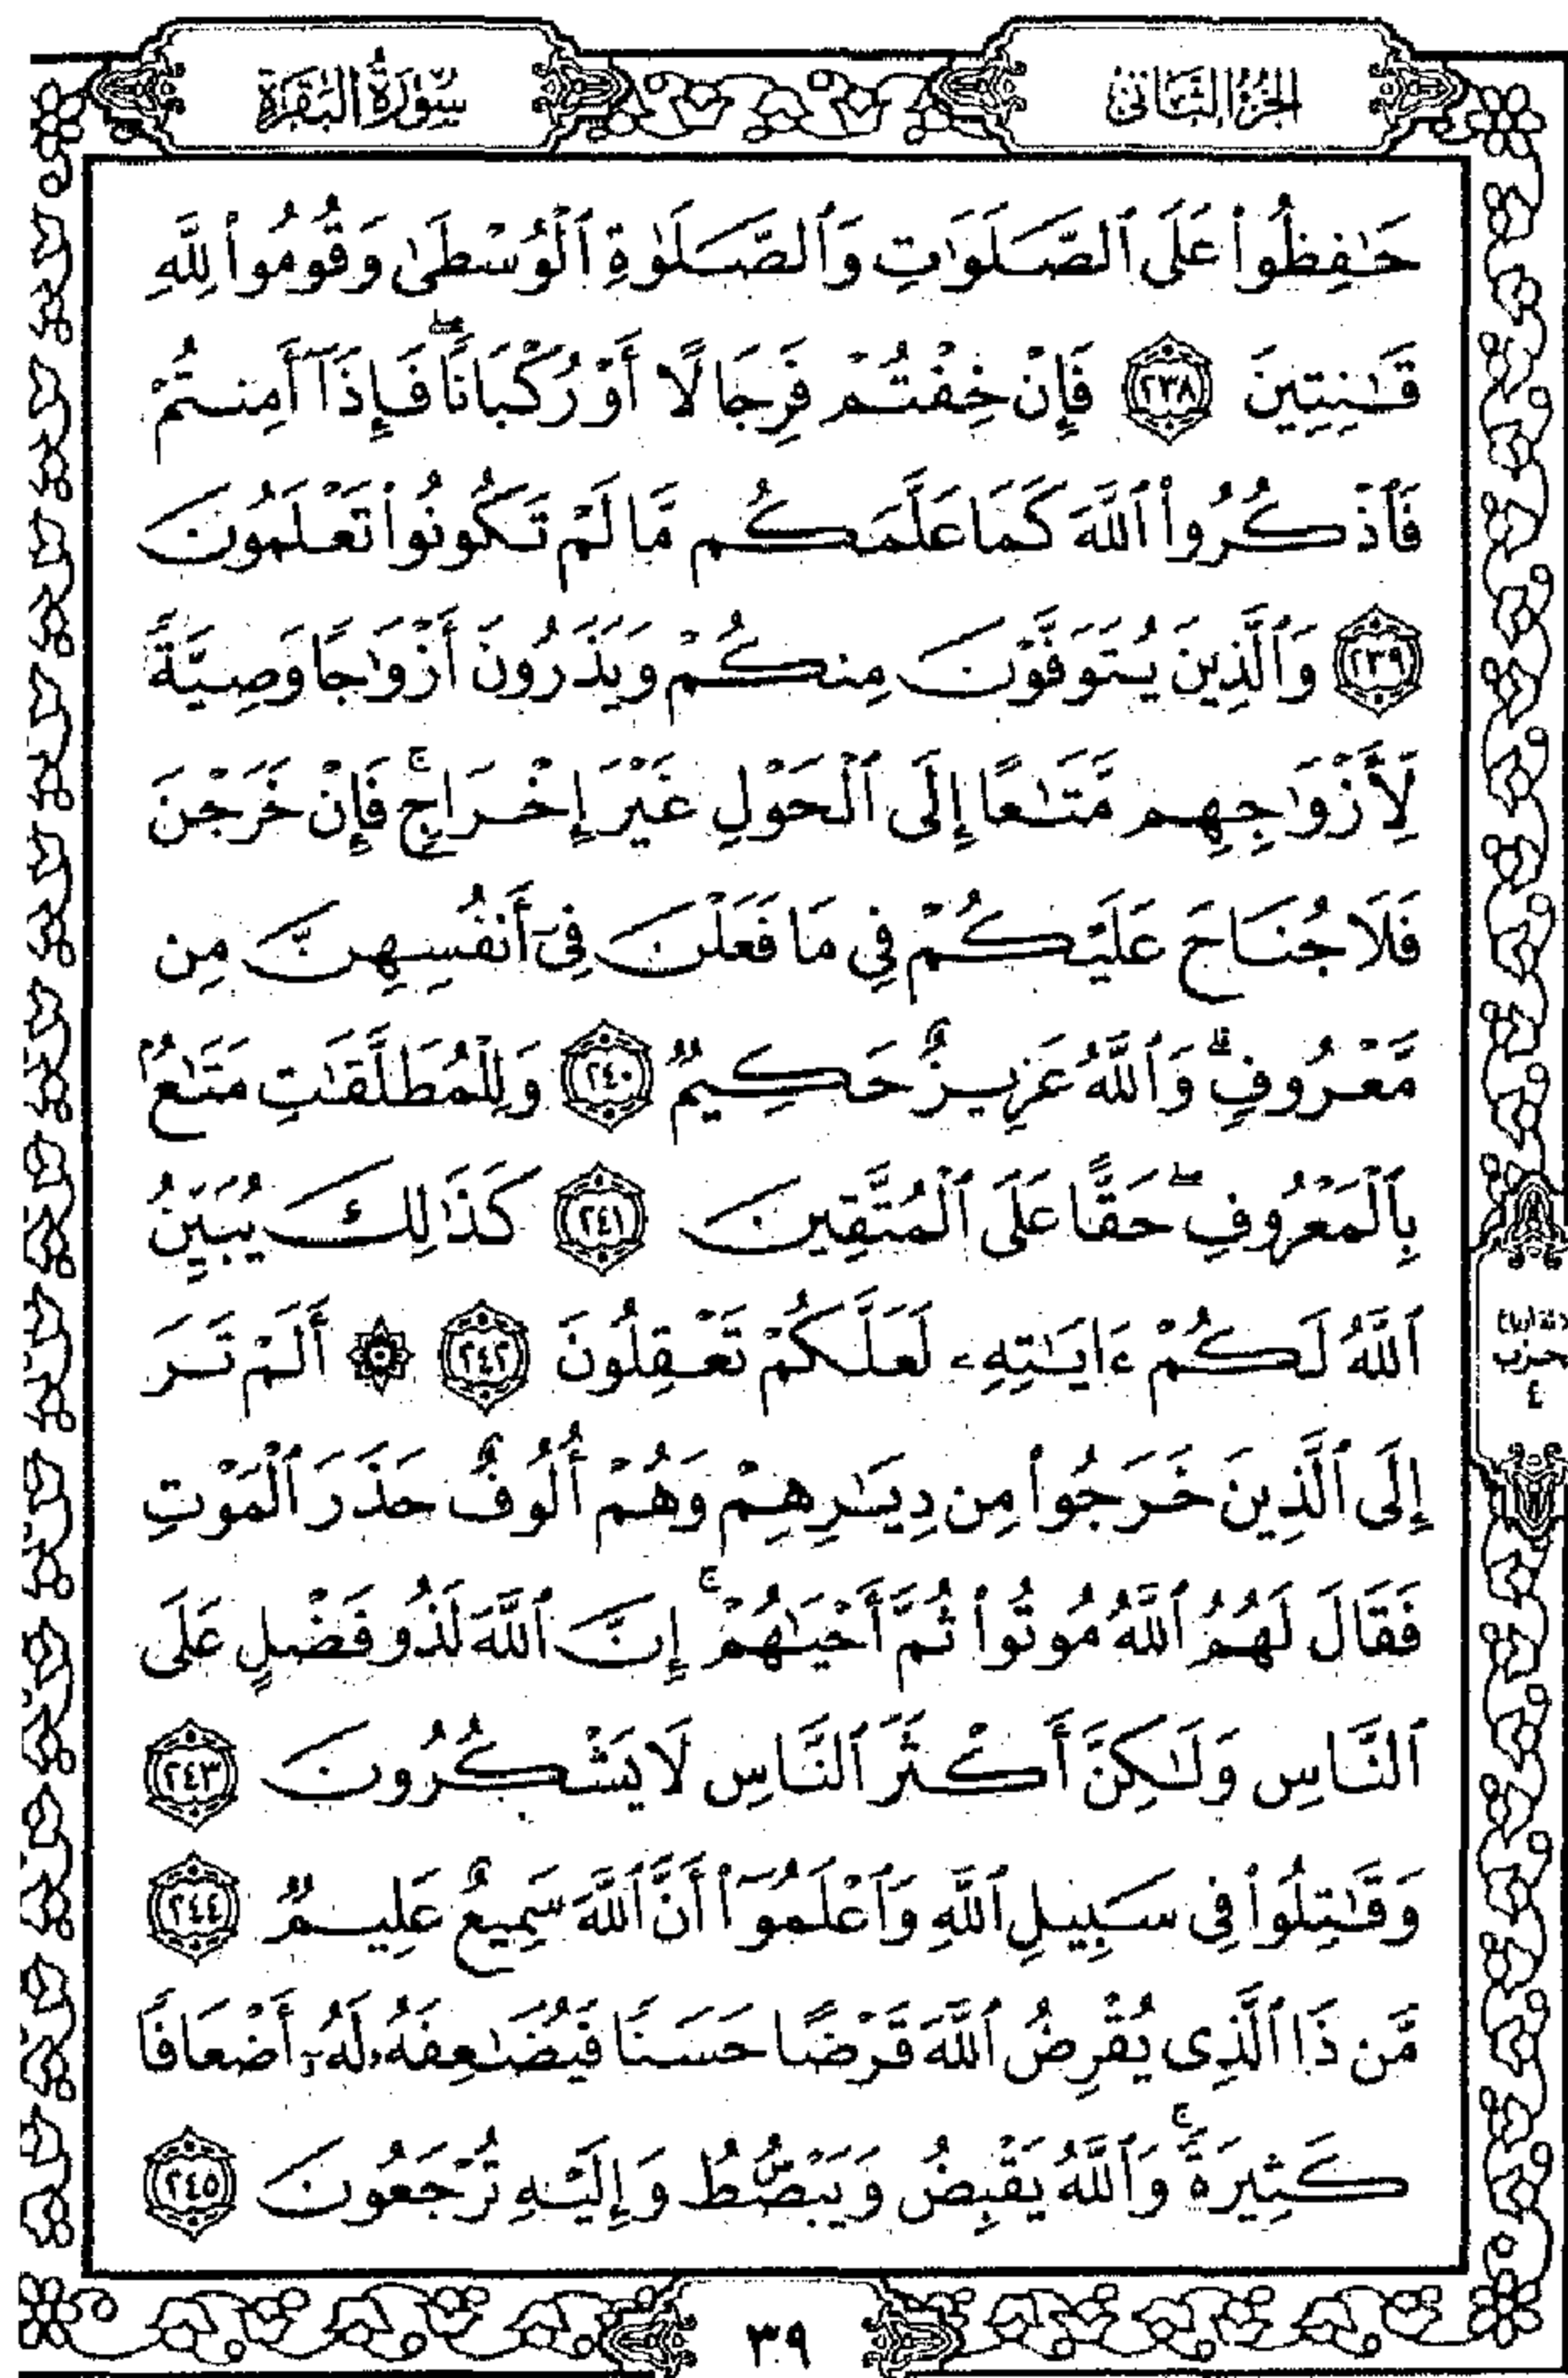 الجزء الثاني
سورة البقرة
حَٰفِظُوا۟ عَلَى ٱلصَّلَوَٰتِ وَٱلصَّلَوٰةِ ٱلْوُسْطَىٰ وَقُومُوا۟ لِلَّهِ
قَٰنِتِينَ ٢٣٨ فَإِنْ خِفْتُمْ فَرِجَالًا أَوْ رُكْبَانًا ۖ فَإِذَآ أَمِنتُمْ
فَٱذْكُرُوا۟ ٱللَّهَ كَمَا عَلَّمَكُم مَّا لَمْ تَكُونُوا۟ تَعْلَمُونَ
٢٣٩ وَٱلَّذِينَ يُتَوَفَّوْنَ مِنكُمْ وَيَذَرُونَ أَزْوَٰجًا وَصِيَّةً
لِّأَزْوَٰجِهِم مَّتَٰعًا إِلَى ٱلْحَوْلِ غَيْرَ إِخْرَاجٍ ۚ فَإِنْ خَرَجْنَ
فَلَا جُنَاحَ عَلَيْكُمْ فِي مَا فَعَلْنَ فِىٓ أَنفُسِهِنَّ مِن
مَّعْرُوفٍ ۗ وَٱللَّهُ عَزِيزٌ حَكِيمٌ ٢٤٠ وَلِلْمُطَلَّقَٰتِ مَتَٰعٌۢ
بِٱلْمَعْرُوفِ ۖ حَقًّا عَلَى ٱلْمُتَّقِينَ ٢٤١ كَذَٰلِكَ يُبَيِّنُ
ٱللَّهُ لَكُمْ ءَايَٰتِهِۦ لَعَلَّكُمْ تَعْقِلُونَ ٢٤٢ ۞ أَلَمْ تَرَ
إِلَى ٱلَّذِينَ خَرَجُوا۟ مِن دِيَٰرِهِمْ وَهُمْ أُلُوفٌ حَذَرَ ٱلْمَوْتِ
فَقَالَ لَهُمُ ٱللَّهُ مُوتُوا۟ ثُمَّ أَحْيَٰهُمْ ۚ إِنَّ ٱللَّهَ لَذُو فَضْلٍ عَلَى
ٱلنَّاسِ وَلَٰكِنَّ أَكْثَرَ ٱلنَّاسِ لَا يَشْكُرُونَ ٢٤٣
وَقَٰتِلُوا۟ فِى سَبِيلِ ٱللَّهِ وَٱعْلَمُوٓا۟ أَنَّ ٱللَّهَ سَمِيعٌ عَلِيمٌ ٢٤٤
مَّن ذَا ٱلَّذِى يُقْرِضُ ٱللَّهَ قَرْضًا حَسَنًا فَيُضَٰعِفَهُۥ لَهُۥٓ أَضْعَافًا
كَثِيرَةً ۚ وَٱللَّهُ يَقْبِضُ وَيَبْصُۜطُ وَإِلَيْهِ تُرْجَعُونَ ٢٤٥
حزب
٤
٣٩